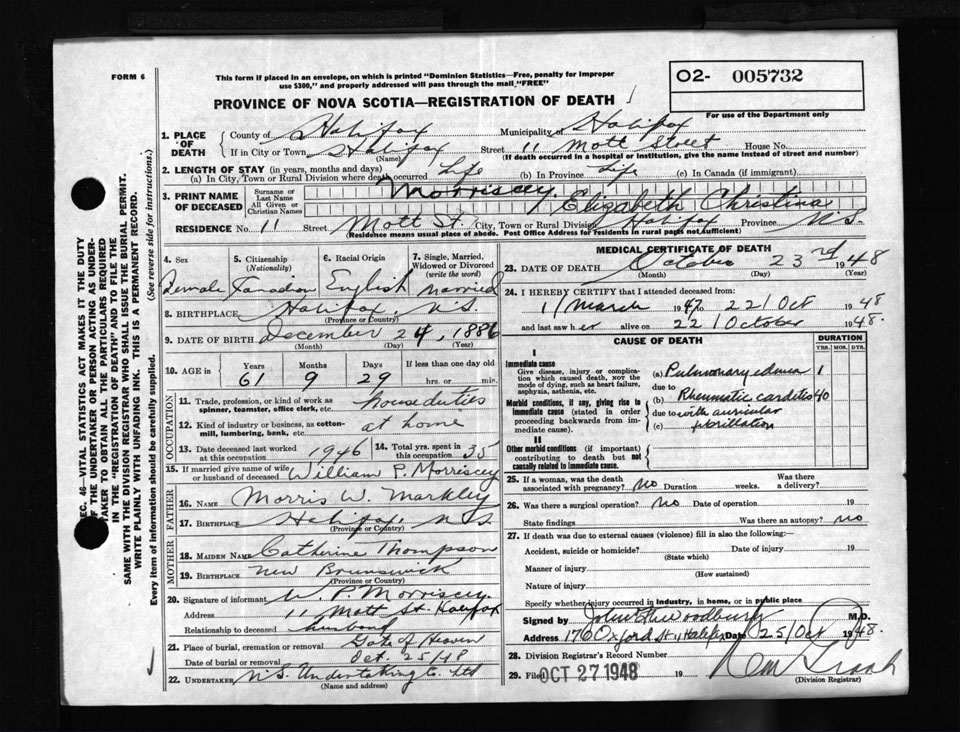 FORM 6
This form if placed in an envelope, on which is printed "Dominion Statistics—Free, penalty for improper
use $300," and properly addressed will pass through the mail "FREE"
O2- 005732
For use of the Department only
PROVINCE OF NOVA SCOTIA—REGISTRATION OF DEATH
1. PLACE OF DEATH
County of Halifax Municipality of Halifax
If in City or Town Halifax Street 11 Mott Street House No.
(Name) (If death occurred in a hospital or institution, give the name instead of street and number)
2. LENGTH OF STAY (in years, months and days)
(a) In City, Town or Rural Division where death occurred Life (b) In Province Life (c) In Canada (if immigrant)
3. PRINT NAME OF DECEASED
Surname or Last Name Morriscey,
All Given or Christian Names Elizabeth Christina
RESIDENCE No. 11 Street Mott St. City, Town or Rural Division Halifax Province N.S.
(Residence means usual place of abode. Post Office Address for residents in rural parts not sufficient)
4. Sex 5. Citizenship (Nationality) 6. Racial Origin 7. Single, Married, Widowed or Divorced (write the word)
Female Canadian English Married
8. BIRTHPLACE Halifax, N.S.
(Province or Country)
9. DATE OF BIRTH December 24, 1886
(Month) (Day) (Year)
10. AGE in Years Months Days If less than one day old
61 9 29 hrs. or min.
OCCUPATION
11. Trade, profession or kind of work as spinner, teamster, office clerk, etc. house duties
12. Kind of industry or business, as cotton-mill, lumbering, bank, etc. at home
13. Date deceased last worked at this occupation 1946 14. Total yrs. spent in this occupation 35
15. If married give name of wife or husband of deceased William P. Morriscey
FATHER
16. NAME Morris W. Markley
17. BIRTHPLACE Halifax, N.S.
(Province or Country)
MOTHER
18. MAIDEN NAME Catherine Thompson
19. BIRTHPLACE New Brunswick
(Province or Country)
20. Signature of informant W. P. Morriscey.
Address 11 Mott St. Halifax
Relationship to deceased husband
21. Place of burial, cremation or removal Gate of Heaven
Date of burial or removal Oct. 25/48
22. UNDERTAKER N.S. Undertaking Co. Ltd
(Name and address)
MEDICAL CERTIFICATE OF DEATH
23. DATE OF DEATH October 23rd 1948
(Month) (Day) (Year)
24. I HEREBY CERTIFY that I attended deceased from:
11 March 1947 to 22 / Oct 1948
and last saw her alive on 22 / October 1948.
CAUSE OF DEATH
DURATION
YRS. MOS. DYS.
I
Immediate cause
Give disease, injury or complication which caused death, NOT the mode of dying, such as heart failure, asphyxia, asthenia, etc.
(a) Pulmonary edema 1
due to
Morbid conditions, if any, giving rise to immediate cause (stated in order of proceeding backwards from immediate cause).
(b) Rheumatic carditis 40
due to with auricular
(c) fibrillation
II
Other morbid conditions (if important) contributing to death but not causally related to immediate cause.
25. If a woman, was the death associated with pregnancy? no Duration weeks. Was there a delivery?
26. Was there a surgical operation? no Date of operation 19
State findings Was there an autopsy? no
27. If death was due to external causes (violence) fill in also the following:
Accident, suicide or homicide? Date of injury 19
(State which)
Manner of injury
(How sustained)
Nature of injury
Specify whether injury occurred in industry, in home, or in public place
Signed by John H. Woodbury M.D.
Address 176 Oxford St., Halifax Date 25/Oct 1948.
28. Division Registrar's Record Number
29. Filed OCT 27 1948 19
(Division Registrar)
SEC. 46—VITAL STATISTICS ACT MAKES IT THE DUTY
OF THE UNDERTAKER OR PERSON ACTING AS UNDER-
TAKER TO OBTAIN ALL THE PARTICULARS REQUIRED
IN THE "REGISTRATION OF DEATH" AND TO FILE THE
SAME WITH THE DIVISION REGISTRAR WHO SHALL ISSUE THE BURIAL PERMIT.
WRITE PLAINLY WITH UNFADING INK. THIS IS A PERMANENT RECORD.
Every item of information should be carefully supplied. (See reverse side for instructions.)